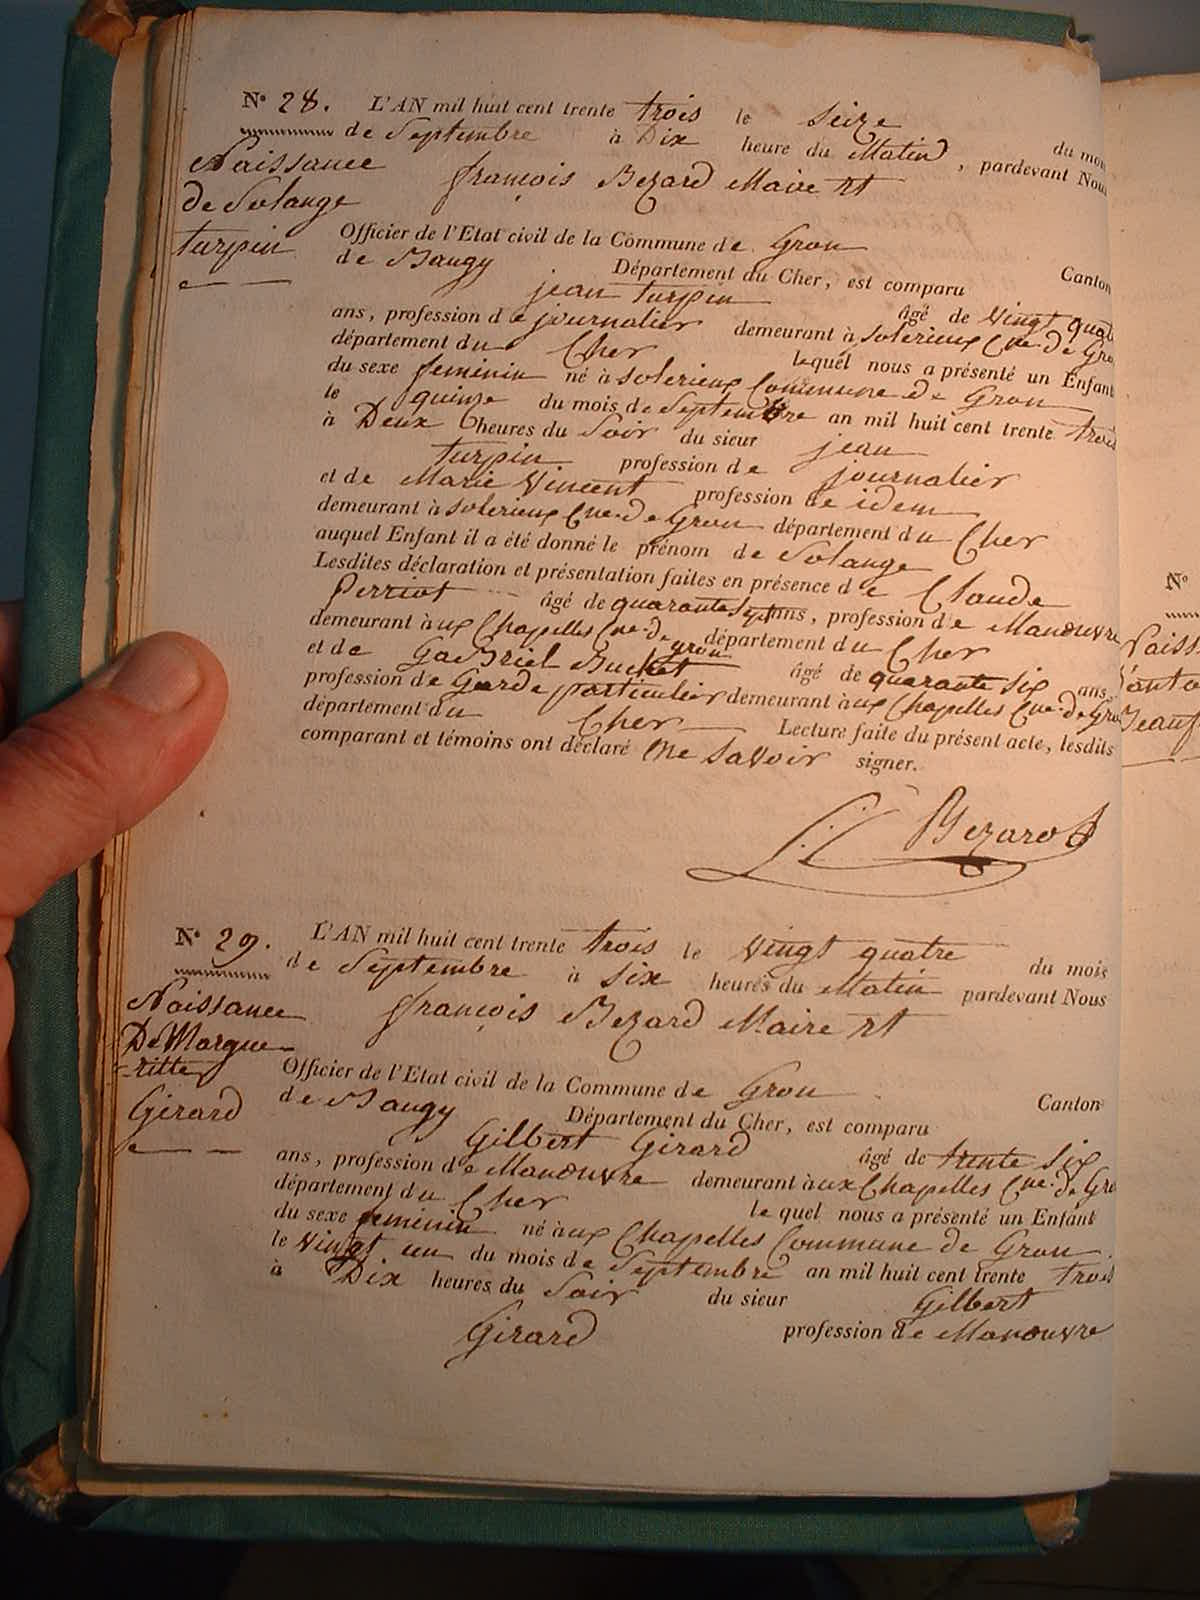 N° 28.
Naissance
de Solange
turpin
L'AN mil huit cent trente trois le Seize du mois
de Septembre à Dix heure du Matin, pardevant Nous
françois Bezard Maire et
Officier de l'Etat civil de la Commune de Gron Canton
de Baugy Département du Cher, est comparu
jean turpin âgé de vingt quat
ans, profession de journalier demeurant à Solerieux Cne. de Gro
département du Cher lequel nous a présenté un Enfant
du sexe feminin né à Solerieux Commune de Gron
le quinze du mois de Septembre an mil huit cent trente trois
à Deux heures du Soir du sieur jean
turpin profession de journalier
et de Marie Vincent profession de idem
demeurant à Solerieux Cne. de Gron département du Cher
auquel Enfant il a été donné le prénom de Solange
Lesdites déclaration et présentation faites en présence de Claude
Perriot âgé de quarante Sept ans, profession de Manœuvre
demeurant aux Chapelles Cne. de gron département du Cher
et de Gabriel Buchet âgé de quarante six ans,
profession de Garde particulier demeurant aux Chapelles Cne. de Gro
département du Cher Lecture faite du présent acte, lesdits
comparant et témoins ont déclaré ne savoir signer.
Bezard
N° 29.
Naissance
De Margue
-ritte
Girard
L'AN mil huit cent trente trois le vingt quatre du mois
de Septembre à six heures du Matin pardevant Nous
françois Bezard Maire et
Officier de l'Etat civil de la Commune de Gron Canton
de Baugy Département du Cher, est comparu
Gilbert Girard âgé de trente six
ans, profession de Manœuvre demeurant aux Chapelles Cne. de Gro
département du Cher lequel nous a présenté un Enfant
du sexe feminin né aux Chapelles Commune de Gron
le vingt un du mois de Septembre an mil huit cent trente trois
à Dix heures du Soir du sieur Gilbert
Girard profession de Manœuvre
N°
Naiss